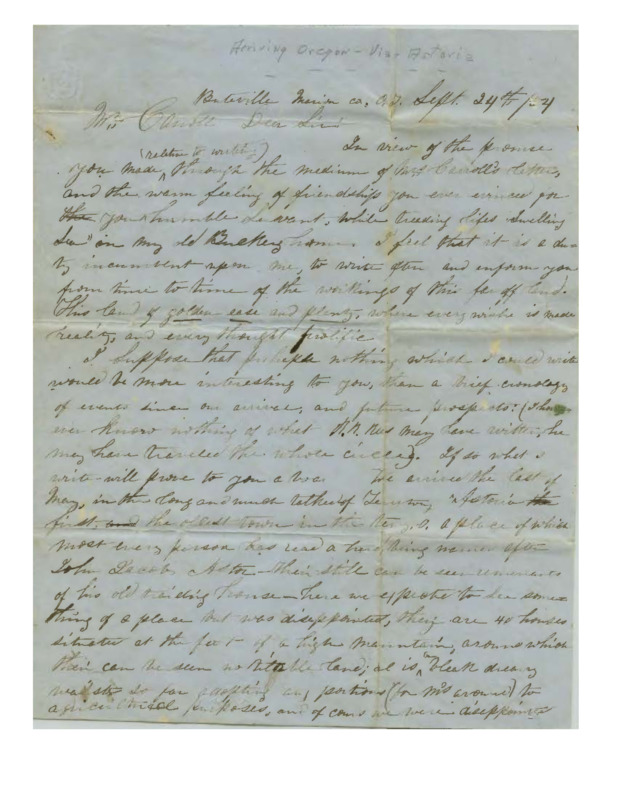 Arriving Oregon - Via - Astoria
Buteville Marion co, O.T. Sept. 24th /54
Mr Carroll Dear Sir:
(relative to writing) In view of the promise
you made, through the medium of Mrs Carroll's letter,
and the warm feeling of friendship you ever evinced for
your humble servant, while treading lifes dwelling
in my old Buckeye home. I feel that it is a du-
ty incumbent upon me, to write often and inform you
from time to time of the workings of this far off land.
This land of golden ease and plenty, where every wish is made
reality, and every thought prolific
I suppose that perhaps nothing which I could write
would be more interesting to you, than a brief cronology
of events since our arrival, and future prospects: (I how
ever know nothing of what may have written, he
may have traveled the whole circle). If so what I
write will prove to you a bore We arrived the last of
May, in the long and much talked of Astoria the
first, and the oldest town in the a place of which
most every person has read a being named after
John Jacob Astor - their still can be seen remenants
of his old traiding house - here we expected to see some
thing of a place but was disappointed, their are 40 houses
situated at the foot of a high mountain, around which
their can be seen no land; al is, "bleek dreary
so far adapting any portions (for m's around) to
agricultural purposes, and of cours we were disappoint